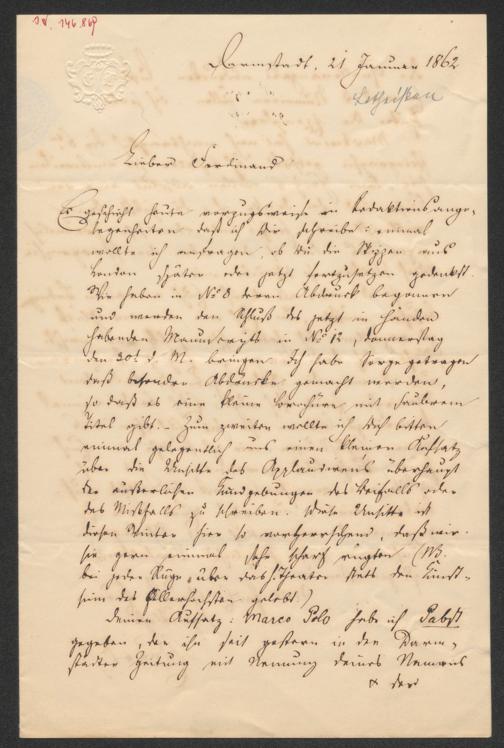 IN. 146.869
Darmstadt, 21 Januar 1862
Lieber Ferdinand
Es geschieht heute vorzugsweise in Redaktionsange-
legenheiten daß ich Dir schreibe: einmal
wollte ich anfragen, ob Du die Skizzen aus
London später oder jetzt fortzusetzen gedenkst.
Wir haben in No 8 deren Abdruck begonnen
und werden den Schluß des jetzt in Händen
habenden Manuscripts in No 12, Donnerstag
den 30t d. M. bringen. Ich habe Sorge getragen
daß besondere Abdrücke gemacht werden,
so daß es eine kleine Broschüre mit sauberem
Titel gibt. – Zum zweiten wollte ich Dich bitten
einmal gelegentlich uns einen kleinen Aufsatz
über die Unsitte des Applaudirens überhaupt
der äußerlichen Kundgebungen des Beifalls oder
des Mißfalls zu schreiben. Diese Unsitte ist
diesen Winter hier so vorherrschend, daß wir
sie gern einmal sehr scharf rügten (NB.
bei jeder Rüge über das Theater stets den Kunst-
sinn des Allerhöchsten gelobt!)
Deinen Aufsatz: Marco Polo habe ich Pabst
gegeben, der ihn seit gestern in der Darm-
städter Zeitung mit Nennung Deines Namens